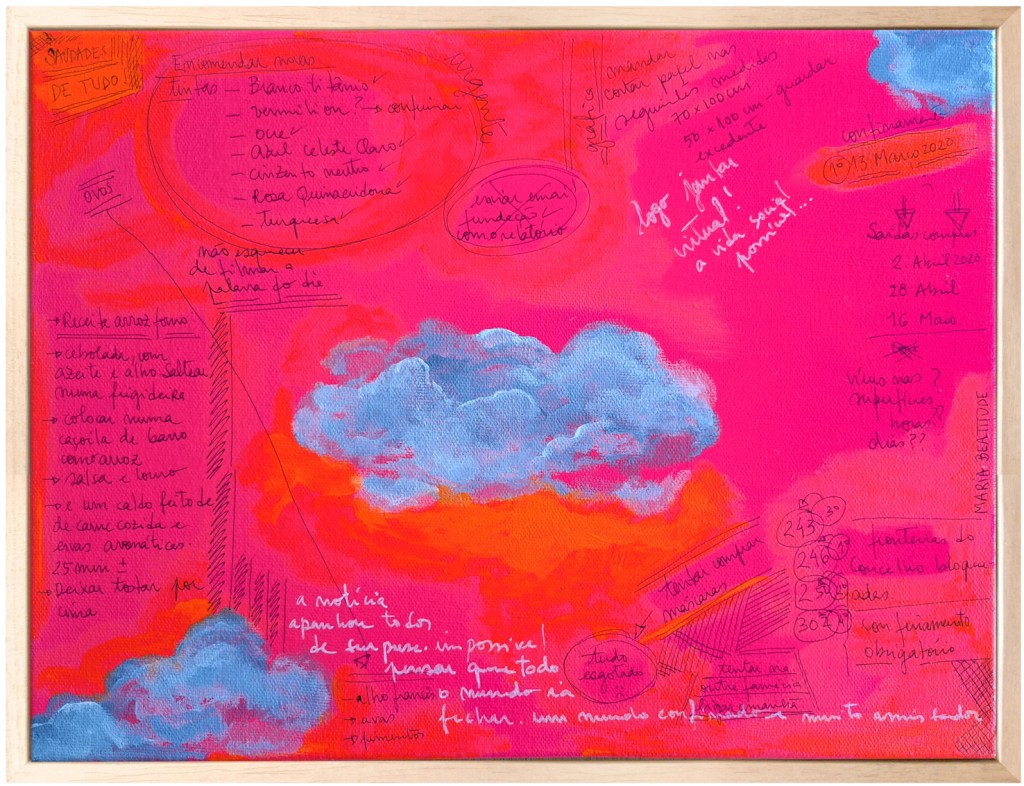 SAUDADES
DE TUDO
Encomendar mas
tintas – Branco titânio
– vermillion? → confirmar
– ocre
– Azul celeste claro
– cinzento neutro
– Rosa Quinacridona
– Turquesa
urgente
mandar
cortar papel nas
seguintes medidas
70 x 100 cm
50 x 100 cm - guardar
excedente
confinamento
1º 13 Março 2020
ovos
enviar email
fundação
com o relatório
logo jantar
virtual!
a vida social
possível...
Saídas compras
2. Abril 2020
28 Abril
16 Maio
não esquecer
de filmar a
palavra do dia
→ Receita arroz forno
→ cebolada, com
azeite e alho saltear
numa frigideira
→ colocar numa
caçoila de barro
com arroz
→ salsa e louro
→ e um caldo feito de
de carne cozida e
ervas aromáticas.
25 min ±
→ Deixar tostar por
cima
Vírus nas?
superfícies
horas??
dias??
MARIA BEATITUDE
243
246
fronteiras do
concelho bloque
adas
302
confinamento
obrigatório
tentar comprar
máscaras
tudo
esgotado
tentar na
outra farmácia
a notícia
apanhou todos
de surpresa. impossível
pensar que todo
o mundo ia
fechar. um mundo confinado e muito amissador
– alho francês
→ uvas
→ pimentos